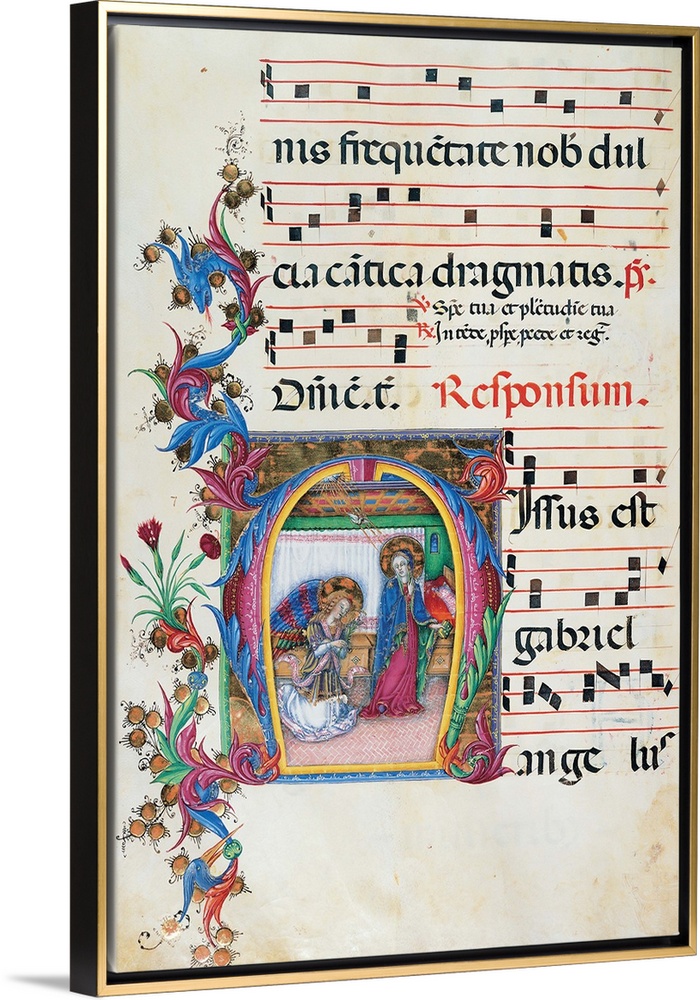 nis frequētare nob̄ dul
cia cātica dragmatis. p̄s.
℣ Spē tua et plētudīe tua
℟ Intēde, pspe, pcede et reg̃.
Dn̄ic̄. t̄. Responsum.
Issus est
gabriel
ange lus